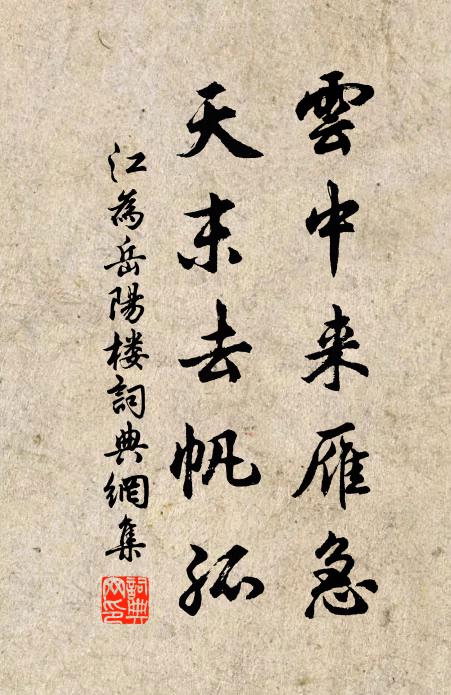 雲中来雁急
天末去帆孤
江為岳陽楼詞典網集
詞典网印